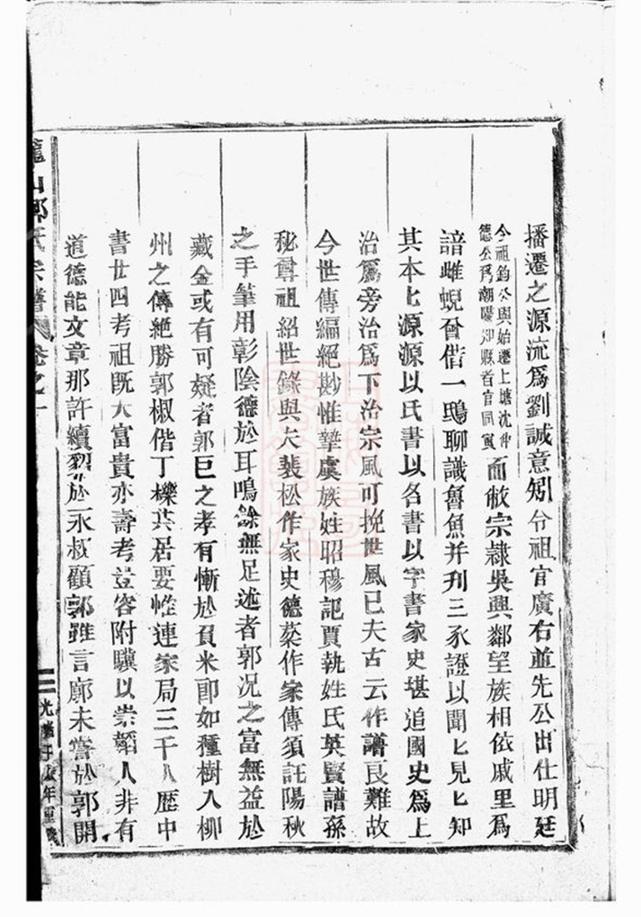 播遷之源流爲劉誠意矧兮祖官廣右並先公出仕明廷
今祖鈞公與始遷上塘沈仲
德公爲潮陽知縣首官同寅
而敝宗隸吳興鄰望族相依戚里爲
諳雌蜺吝借一鴟聊識魯魚并刋三豕證以聞匕見匕知
其本匕源源以氏書以名書以字書家史堪追國史爲上
治爲旁治爲下治宗風可挽世風已夫古云作譜良難故
今世傳編絕尠惟摯虞族姓昭穆記賈執姓氏英賢譜孫
秘尊祖紹世錄與夫裴松作家史德棻作家傳須註陽秋
之手筆用彰陰德於耳鳴餘無足述者郭况之富無益於
藏金或有可疑者郭巨之孝有慚於負米即如種樹入柳
州之傳絕勝郭椒偕丁櫟其居要惟連家局三千人歷中
書廿四考祖既大富貴亦壽考豈容附驥以崇韜人非有
道德能文章那許續貂於永叔顧郭雖言廓未嘗於郭開
山郭氏宗譜 卷之一
光緒 年重